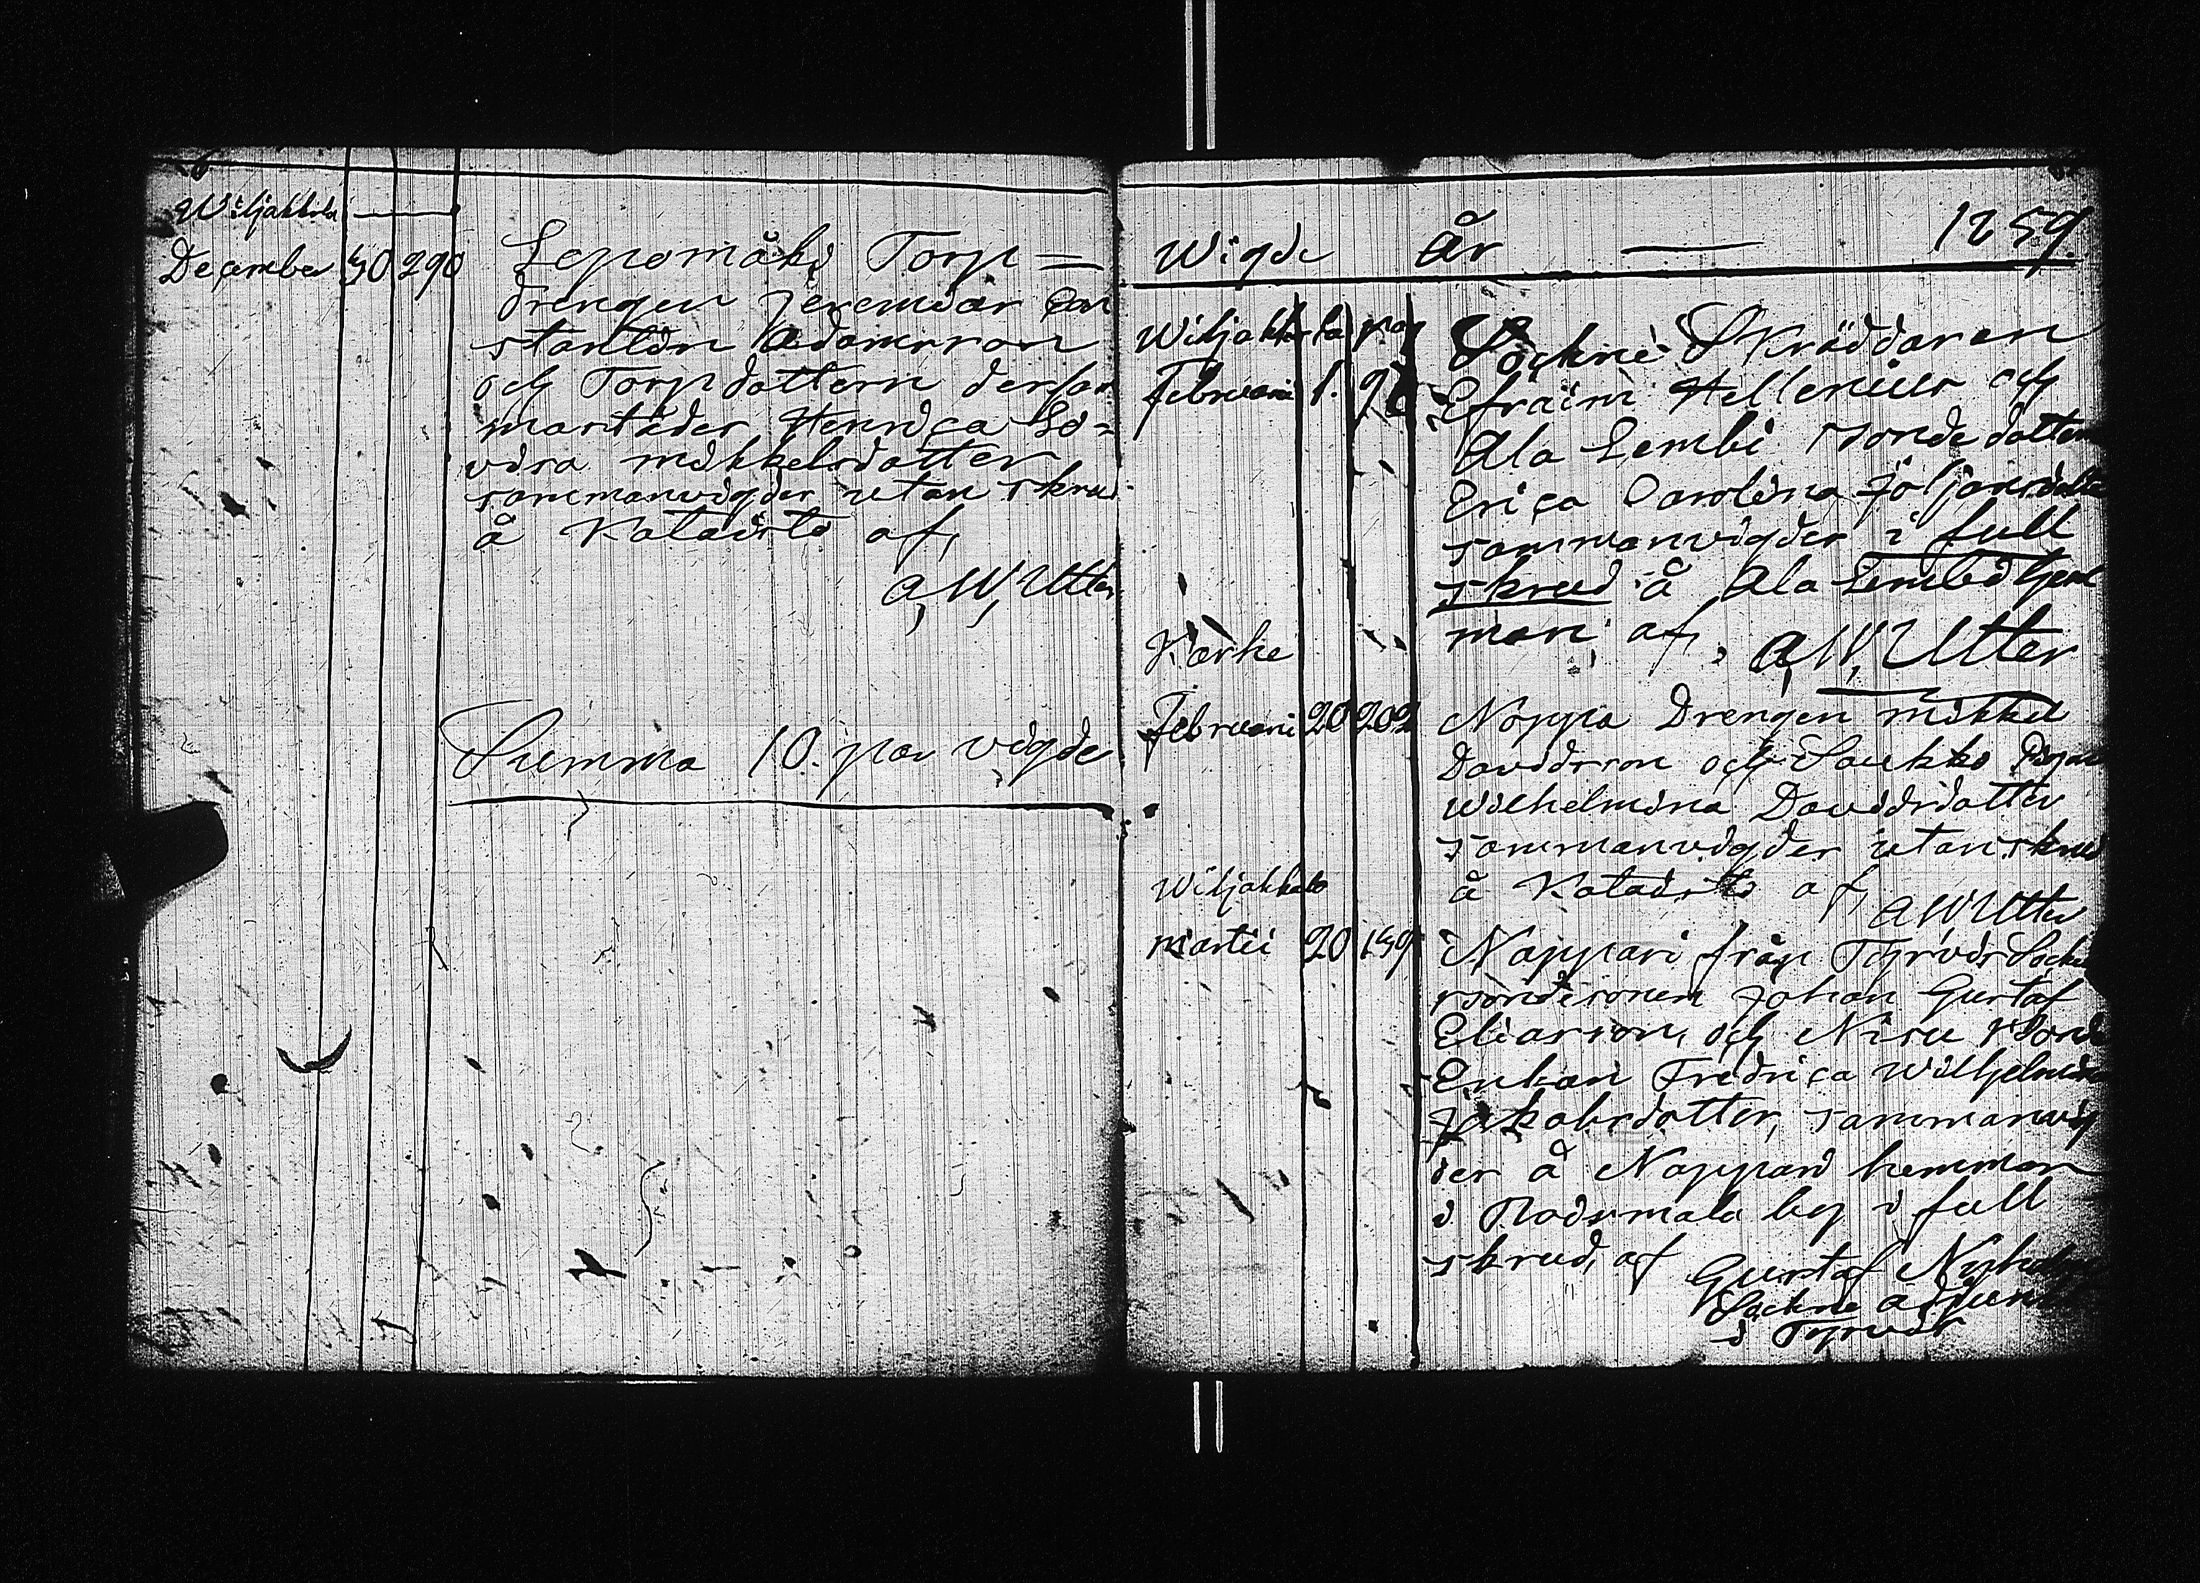 Wiljakkala
December 30 290 Lepomäki Torp=
drengen Jeremias Con
stantin Adamsson
och Torpdottern dersam
mastädes Henrica Lo=
visa Mikkelsdotter
sammanvigdes utan skrud
å Kataisto af,
A, W, Utter
Summa 10. par vigde
Wigde År — 1859.
Wiljakkala pag
Februari 1. Sockne Skräddaren
Efraim Hellenius och
Ala Lembi bonde dottern
Erica Carolina Johansdotter
sammanvigdes i full
skrud å Ala Lembi hem
man, af, A, W, Utter
Karhe
Februari 20 202 Noppa Drengen Mikkel
Davidsson och Saukko Pigan
Wilhelmina Davidsdotter
sammanvigdes utan skrud
å Kataisto af, A W Utter
Wiljakkala
Martii 20 159 Nappari från Tyrvis Socken
bondesonen Johan Gustaf
Eliasson, och Nisu bonde
Enkan Fredrica Wilhelmina
Jakobsdotter, sammanvig
des å Nappari hemman
i Roismala by i full
skrud, af Gustaf
Sockne adjunkt
i Tyrvis